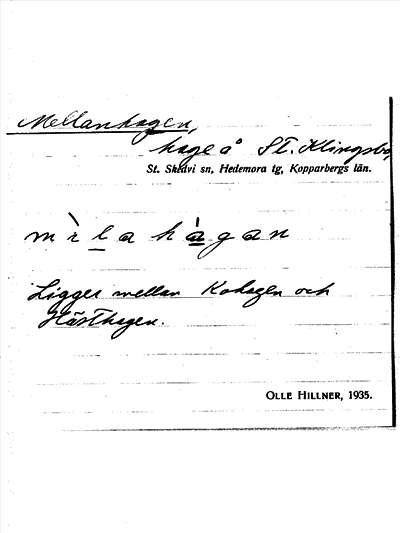 Mellanhagen,
hage å St. Klingsbo,
St. Skedvi sn, Hedemora tg, Kopparbergs län.
mìla hágan
Ligger mellan Kohagen och
Hästhagen.
OLLE HILLNER, 1935.